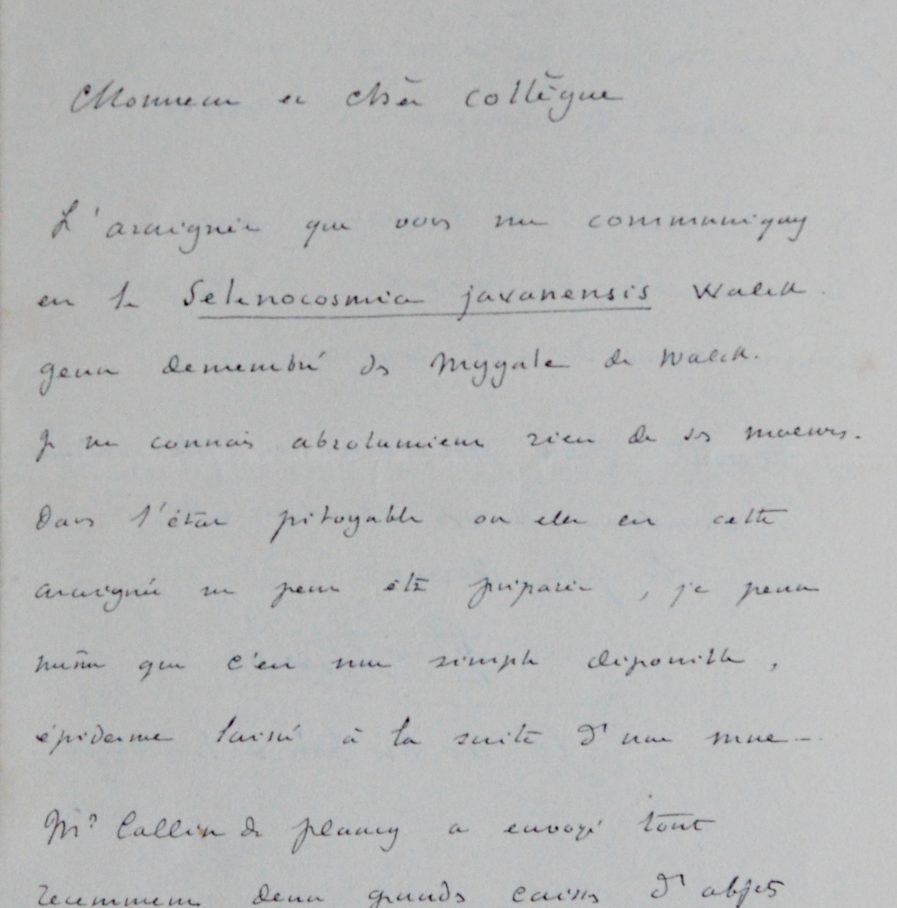 Monsieur et cher collègue
L'araignée que vous me communiquez
est le Selenocosmia javanensis Walck.
genre demembré des Mygale de Walck.
Je ne connais absolument rien de ses moeurs.
Dans l'état pitoyable ou elle est cette
araignée ne peut être préparée, je pense
même que c'est une simple dépouille,
épiderme laissé à la suite d'une mue--
Mr Collin de plancy a envoyé tout
recemment deux grands caisses d'objets